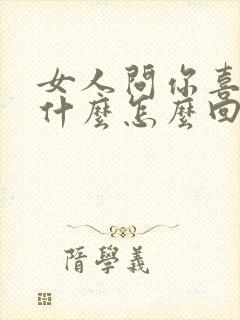 女人問你喜
什麼怎麼回
隋學義